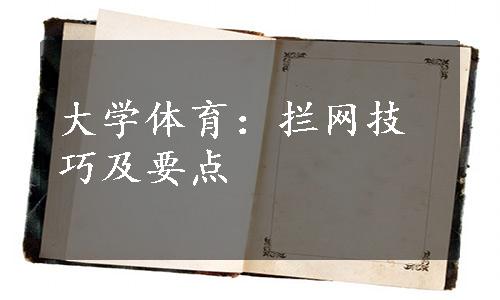 大学体育：拦网技
巧及要点